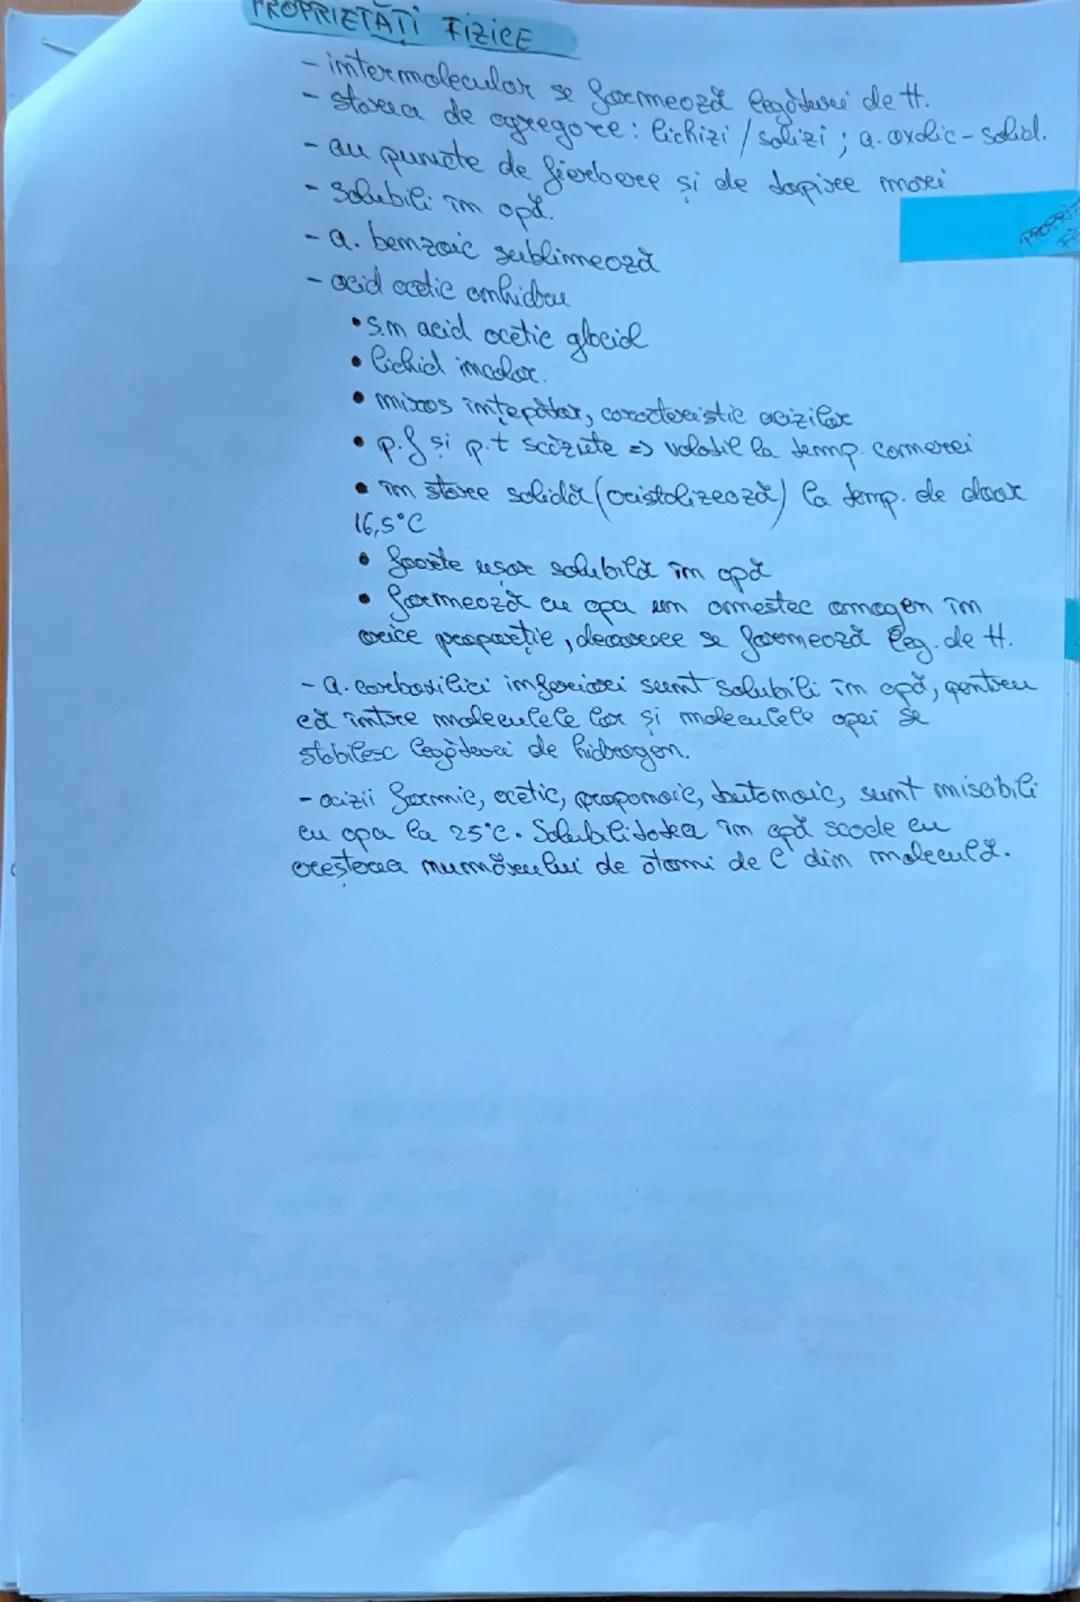 PROPRIETĂȚI FIZICE
- intermolecular se formează legături de H.
- starea de agregare: lichizi / solizi ; a. oxalic - solid.
- au puncte de fierbere și de topire mari
- solubili în apă.
- a. benzoic sublimează
- acid acetic anhidru
• s.m acid acetic glacial
• lichid incolor.
• miros înțepător, caracteristic acizilor
• p.f și p.t scăzute => volatil la temp. camerei
• în stare solidă (cristalizează) la temp. de doar
16,5°C
• foarte ușor solubilă în apă
• formează cu apa un amestec omogen în
orice proporție, deoarece se formează leg. de H.
- a. carboxilici inferiori sunt solubili în apă, pentru
că între moleculele lor și moleculele apei se
stabilesc legături de hidrogen.
- acizii formic, acetic, propanoic, butanoic, sunt miscibili
cu apa la 25°C. Solubilitatea în apă scade cu
creșterea numărului de atomi de C din moleculă.